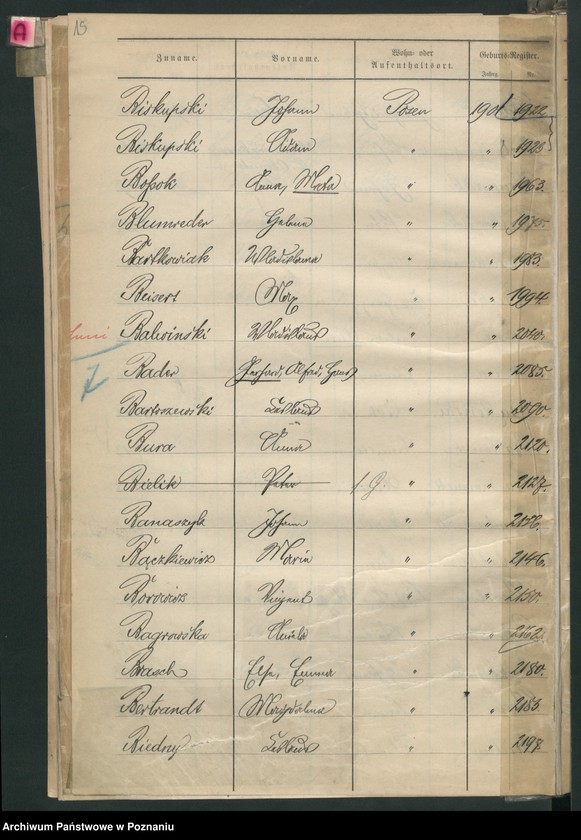 A
15
Zuname. Vorname. Wohn- oder Aufenthaltsort. Geburts-Register.
Jahrg. Nr.
Biskupski Johann Posen 1901 1922
Biskupski Adam " " 1923
Bossok Anna, Marta " " 1965.
Blumreder Helene " " 1975.
Bartkowiak Wladislawa " " 1983.
Beisert Max " " 1994
Balwinski Wladislaus " " 2010.
Bader Gerhard, Alfred, Hans " " 2085.
Bartoszewski Ladislaus " " 2090.
Bura Anna " " 2120.
Bielik Peter " " 2127.
Banaszyk Johann " "
Bączkiewicz Maria " " 2146.
Borowicz Vinzent " " 2150.
Bagrowska " " 2162.
Brasch Else, Emma " " 2180.
Bertrandt Magdalena " " 2183
Biedny Ladislaus " " 2197.
Archiwum Państwowe w Poznaniu